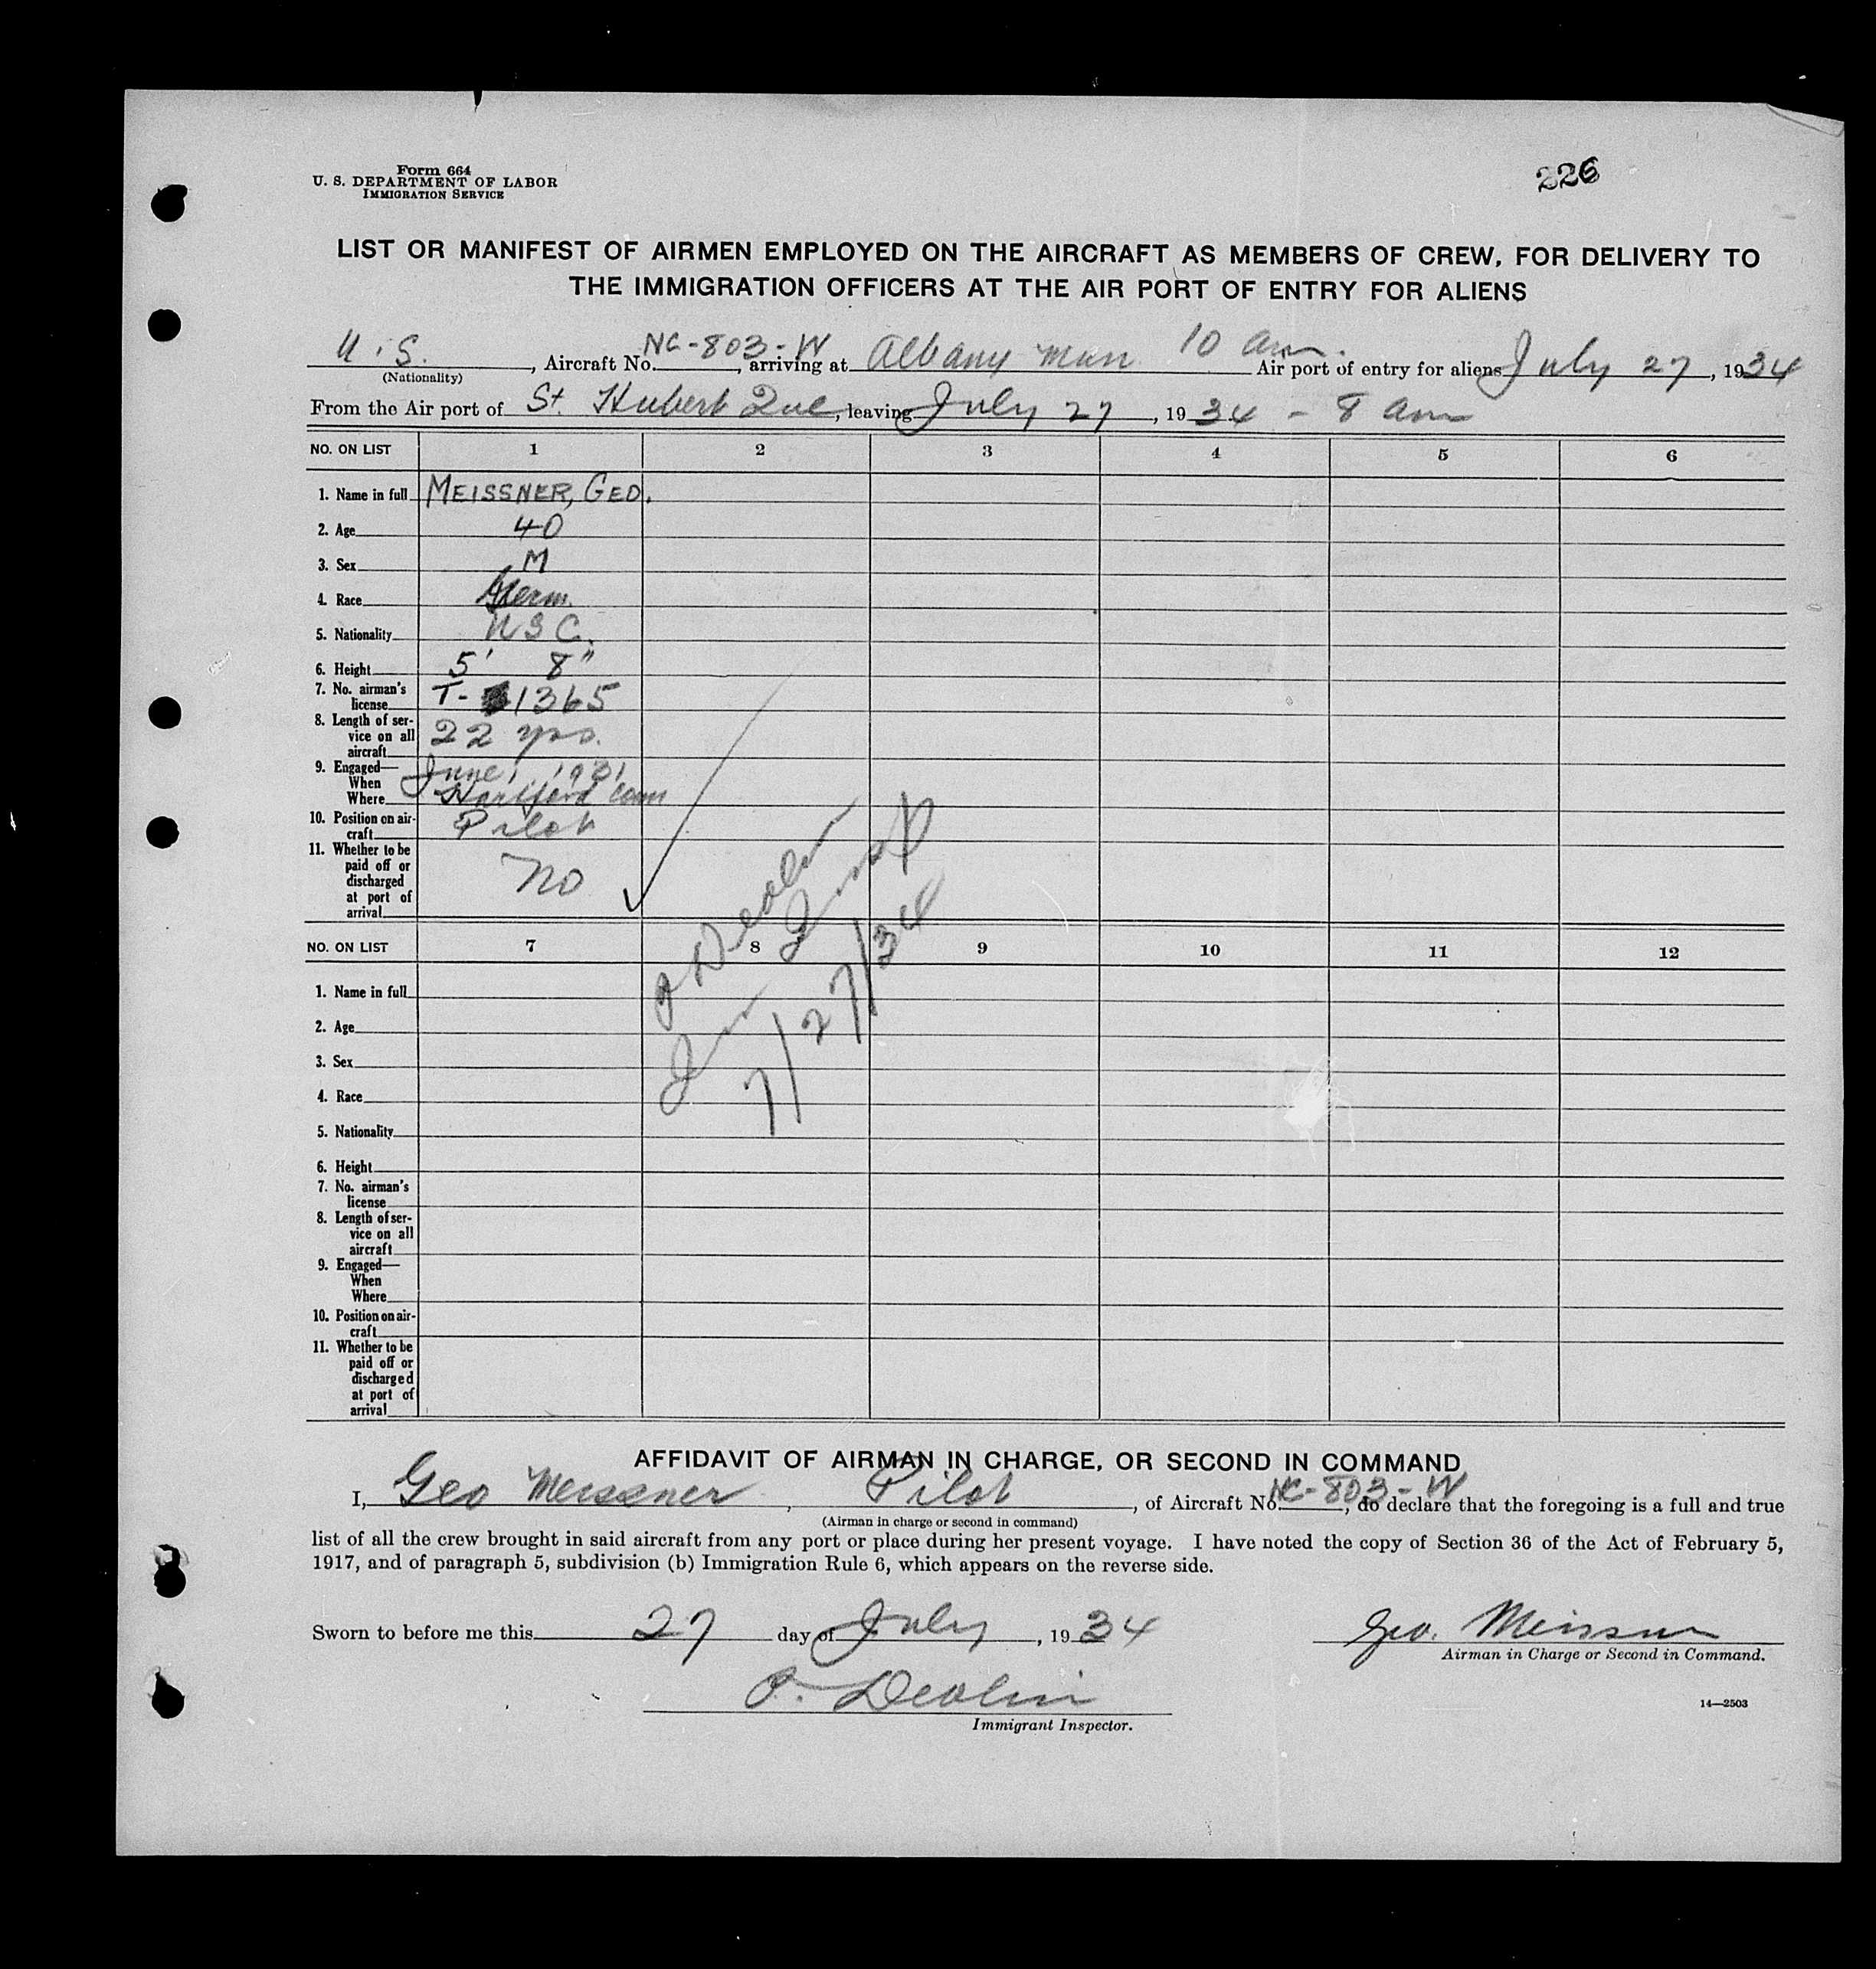 Form 664
U. S. DEPARTMENT OF LABOR
IMMIGRATION SERVICE
226
LIST OR MANIFEST OF AIRMEN EMPLOYED ON THE AIRCRAFT AS MEMBERS OF CREW, FOR DELIVERY TO
THE IMMIGRATION OFFICERS AT THE AIR PORT OF ENTRY FOR ALIENS
U.S., Aircraft No. NC-803-W, arriving at Albany Mun 10 am. Air port of entry for aliens July 27, 1934
(Nationality)
From the Air port of St. Hubert Que, leaving July 27, 1934 - 8 am
NO. ON LIST 1 2 3 4 5 6
1. Name in full MEISSNER, GEO.
2. Age 40
3. Sex M
4. Race Germ.
5. Nationality USC.
6. Height 5' 8"
7. No. airman's
license T- 1365
8. Length of ser-
vice on all
aircraft 22 yrs.
9. Engaged—
When June 1, 1931
Where Hartford Conn
10. Position on air-
craft Pilot
11. Whether to be
paid off or
discharged
at port of
arrival No
P Devlin
Imm Insp
7/27/34
NO. ON LIST 7 8 9 10 11 12
1. Name in full
2. Age
3. Sex
4. Race
5. Nationality
6. Height
7. No. airman's
license
8. Length of ser-
vice on all
aircraft
9. Engaged—
When
Where
10. Position on air-
craft
11. Whether to be
paid off or
discharged
at port of
arrival
AFFIDAVIT OF AIRMAN IN CHARGE, OR SECOND IN COMMAND
I, Geo Meissner, Pilot, of Aircraft No. NC-803-W, do declare that the foregoing is a full and true
(Airman in charge or second in command)
list of all the crew brought in said aircraft from any port or place during her present voyage. I have noted the copy of Section 36 of the Act of February 5,
1917, and of paragraph 5, subdivision (b) Immigration Rule 6, which appears on the reverse side.
Sworn to before me this 27 day of July, 1934
Geo. Meissner
Airman in Charge or Second in Command.
P. Devlin
Immigrant Inspector.
14—2503